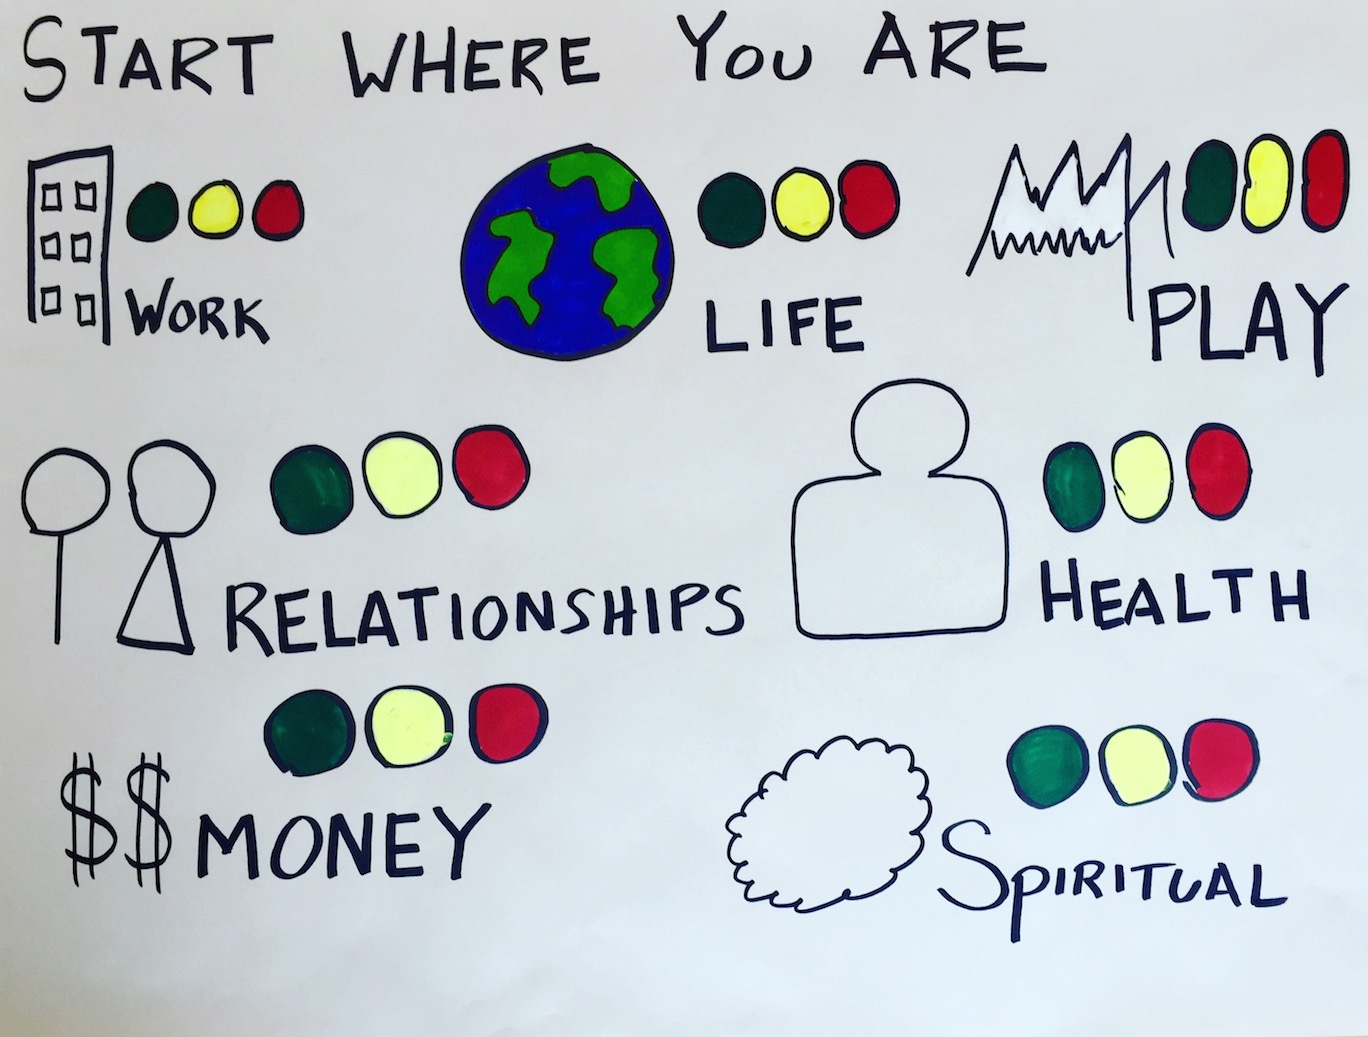 START WHERE YOU ARE
WORK
LIFE
PLAY
RELATIONSHIPS
HEALTH
$$ MONEY
SPIRITUAL